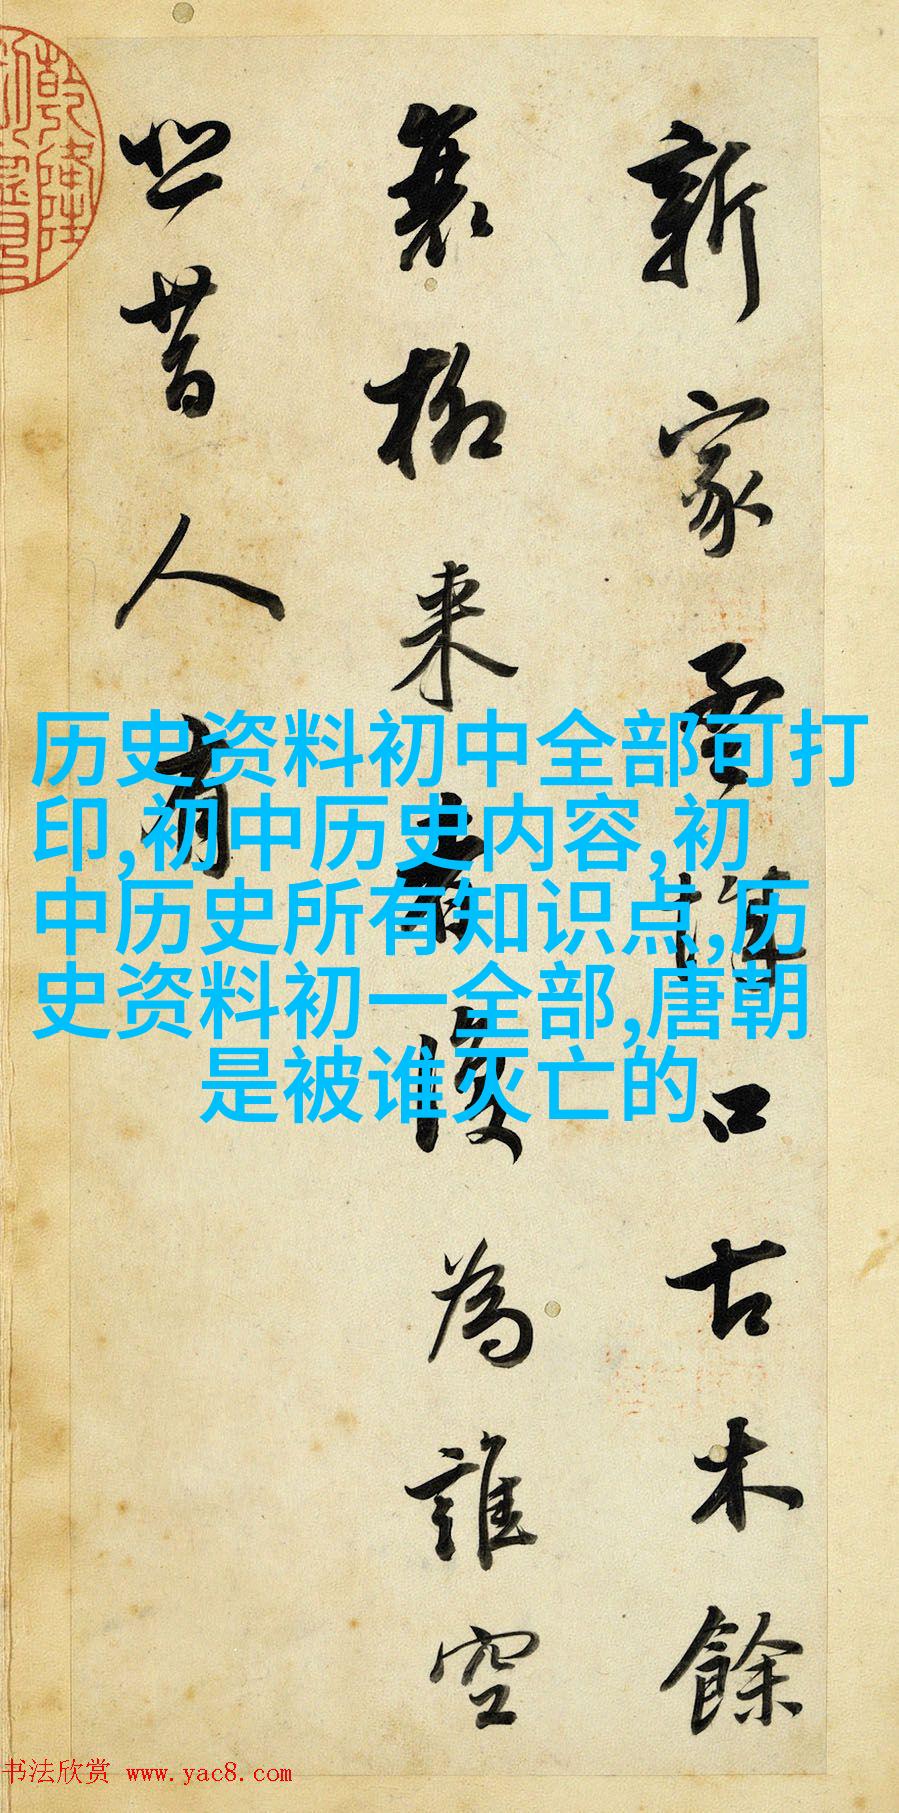 新家孟口古木餘
衰柳来者復為誰空
悲昔人有
乾隆
历史资料初中全部可打
印,初中历史内容,初
中历史所有知识点,历
史资料初一全部,唐朝
是被谁灭亡的
书法欣赏 www.yac8.com